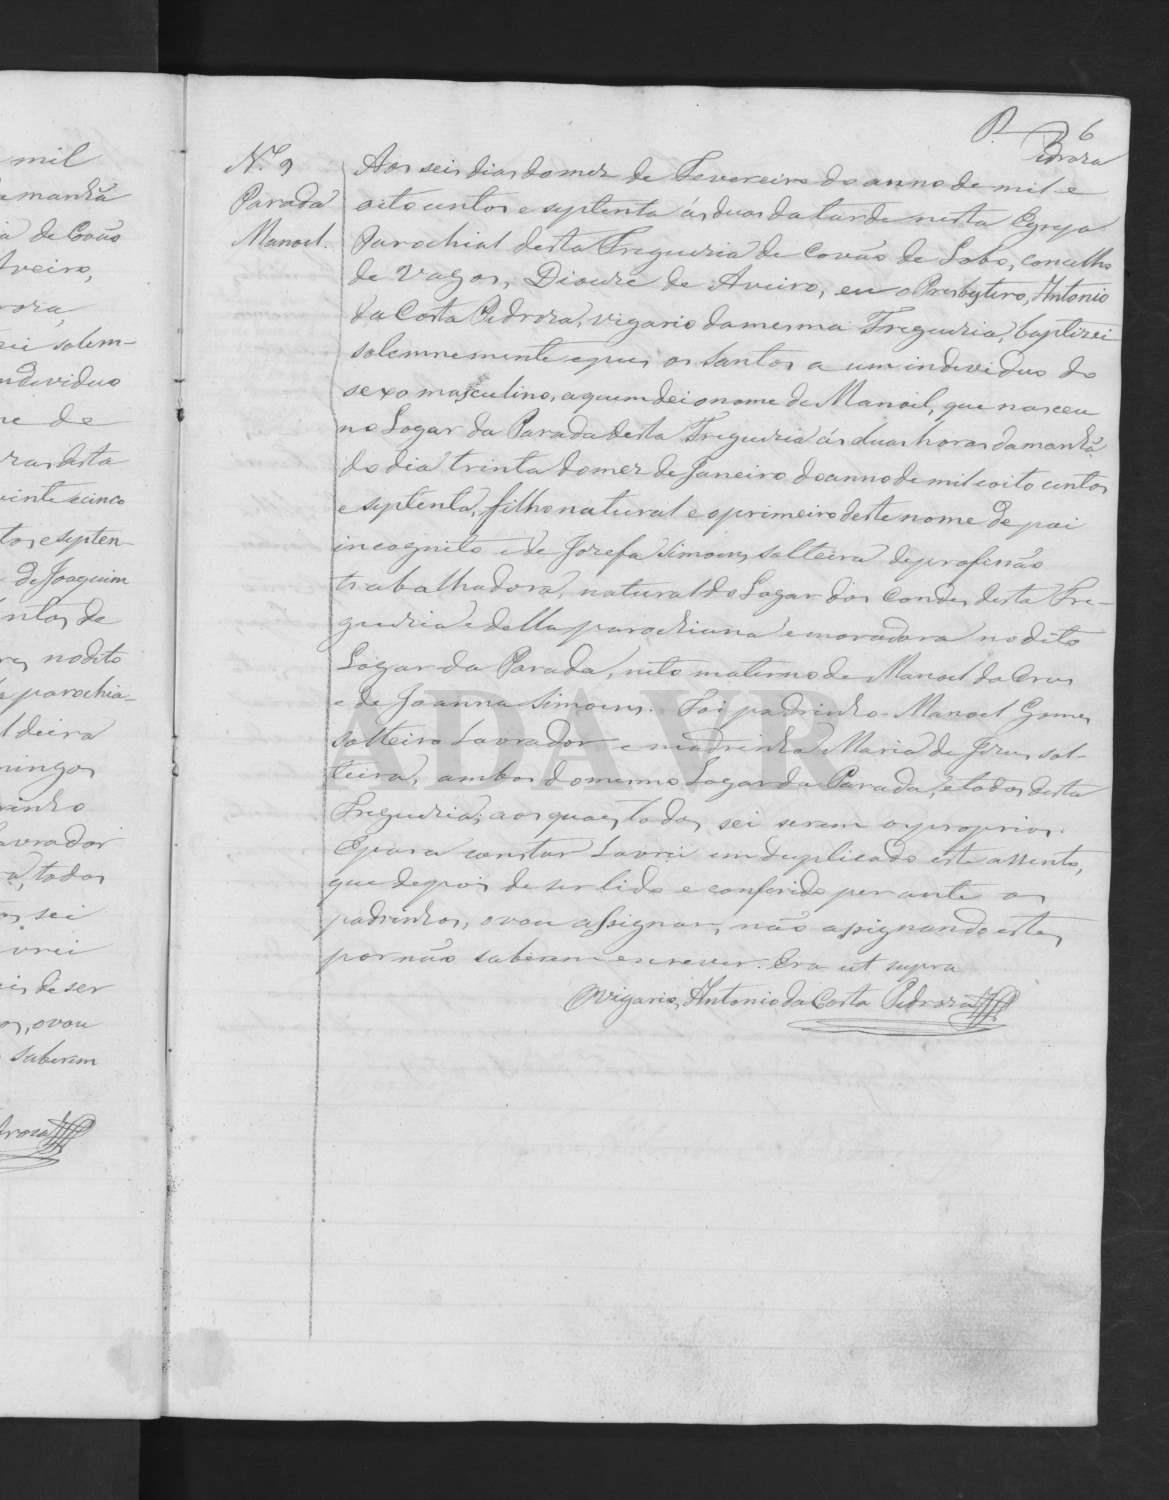 mil
manhã
de Covão
Aveiro,
solem-
individuo
de
desta
vinte e cinco
tos e septen-
de Joaquim
de
nodito
parochia-
deira
mingos
avrador
todos
sei
vrei
de ser
ovou
saberem
P. 6
Pedroza
N.º 9
Parada
Manoel.
Aos seis dias do mez de Fevereiro do anno de mil e
oito centos e septenta ás duas da tarde nesta Egreja
Parochial desta Freguezia de Covão de Lobo, concelho
de Vagos, Diocese de Aveiro, eu o Presbytero, Antonio
da Costa Pedroza, vigario da mesma Freguezia, baptizei
solemnemente e puz os Santos a um individuo do
sexo masculino, a quem dei o nome de Manoel, que nasceu
no Logar da Parada desta Freguezia ás duas horas da manhã
do dia trinta do mez de Janeiro do anno de mil e oito centos
e septenta, filho natural e o primeiro deste nome de pai
incognito e de Jozefa Simoens, solteira de profissão
trabalhadora, natural do Logar dos Condes desta Fre-
guezia e della parochiana e moradora no dito
Logar da Parada, neto materno de Manoel da Cruz
e de Joanna Simoens. Foi padrinho Manoel Gomes
solteiro Lavrador e madrinha Maria de Jezus sol-
teira, ambos do mesmo Logar da Parada, e todos desta
Freguezia; aos quaes todos sei serem os proprios.
E para constar Lavrei em duplicado este assento,
que depois de ser lido e conferido perante os
padrinhos, o vou assignar, não assignando estes
por não saberem escrever. Era ut supra
O vigario, Antonio da Costa Pedroza
ADAVR